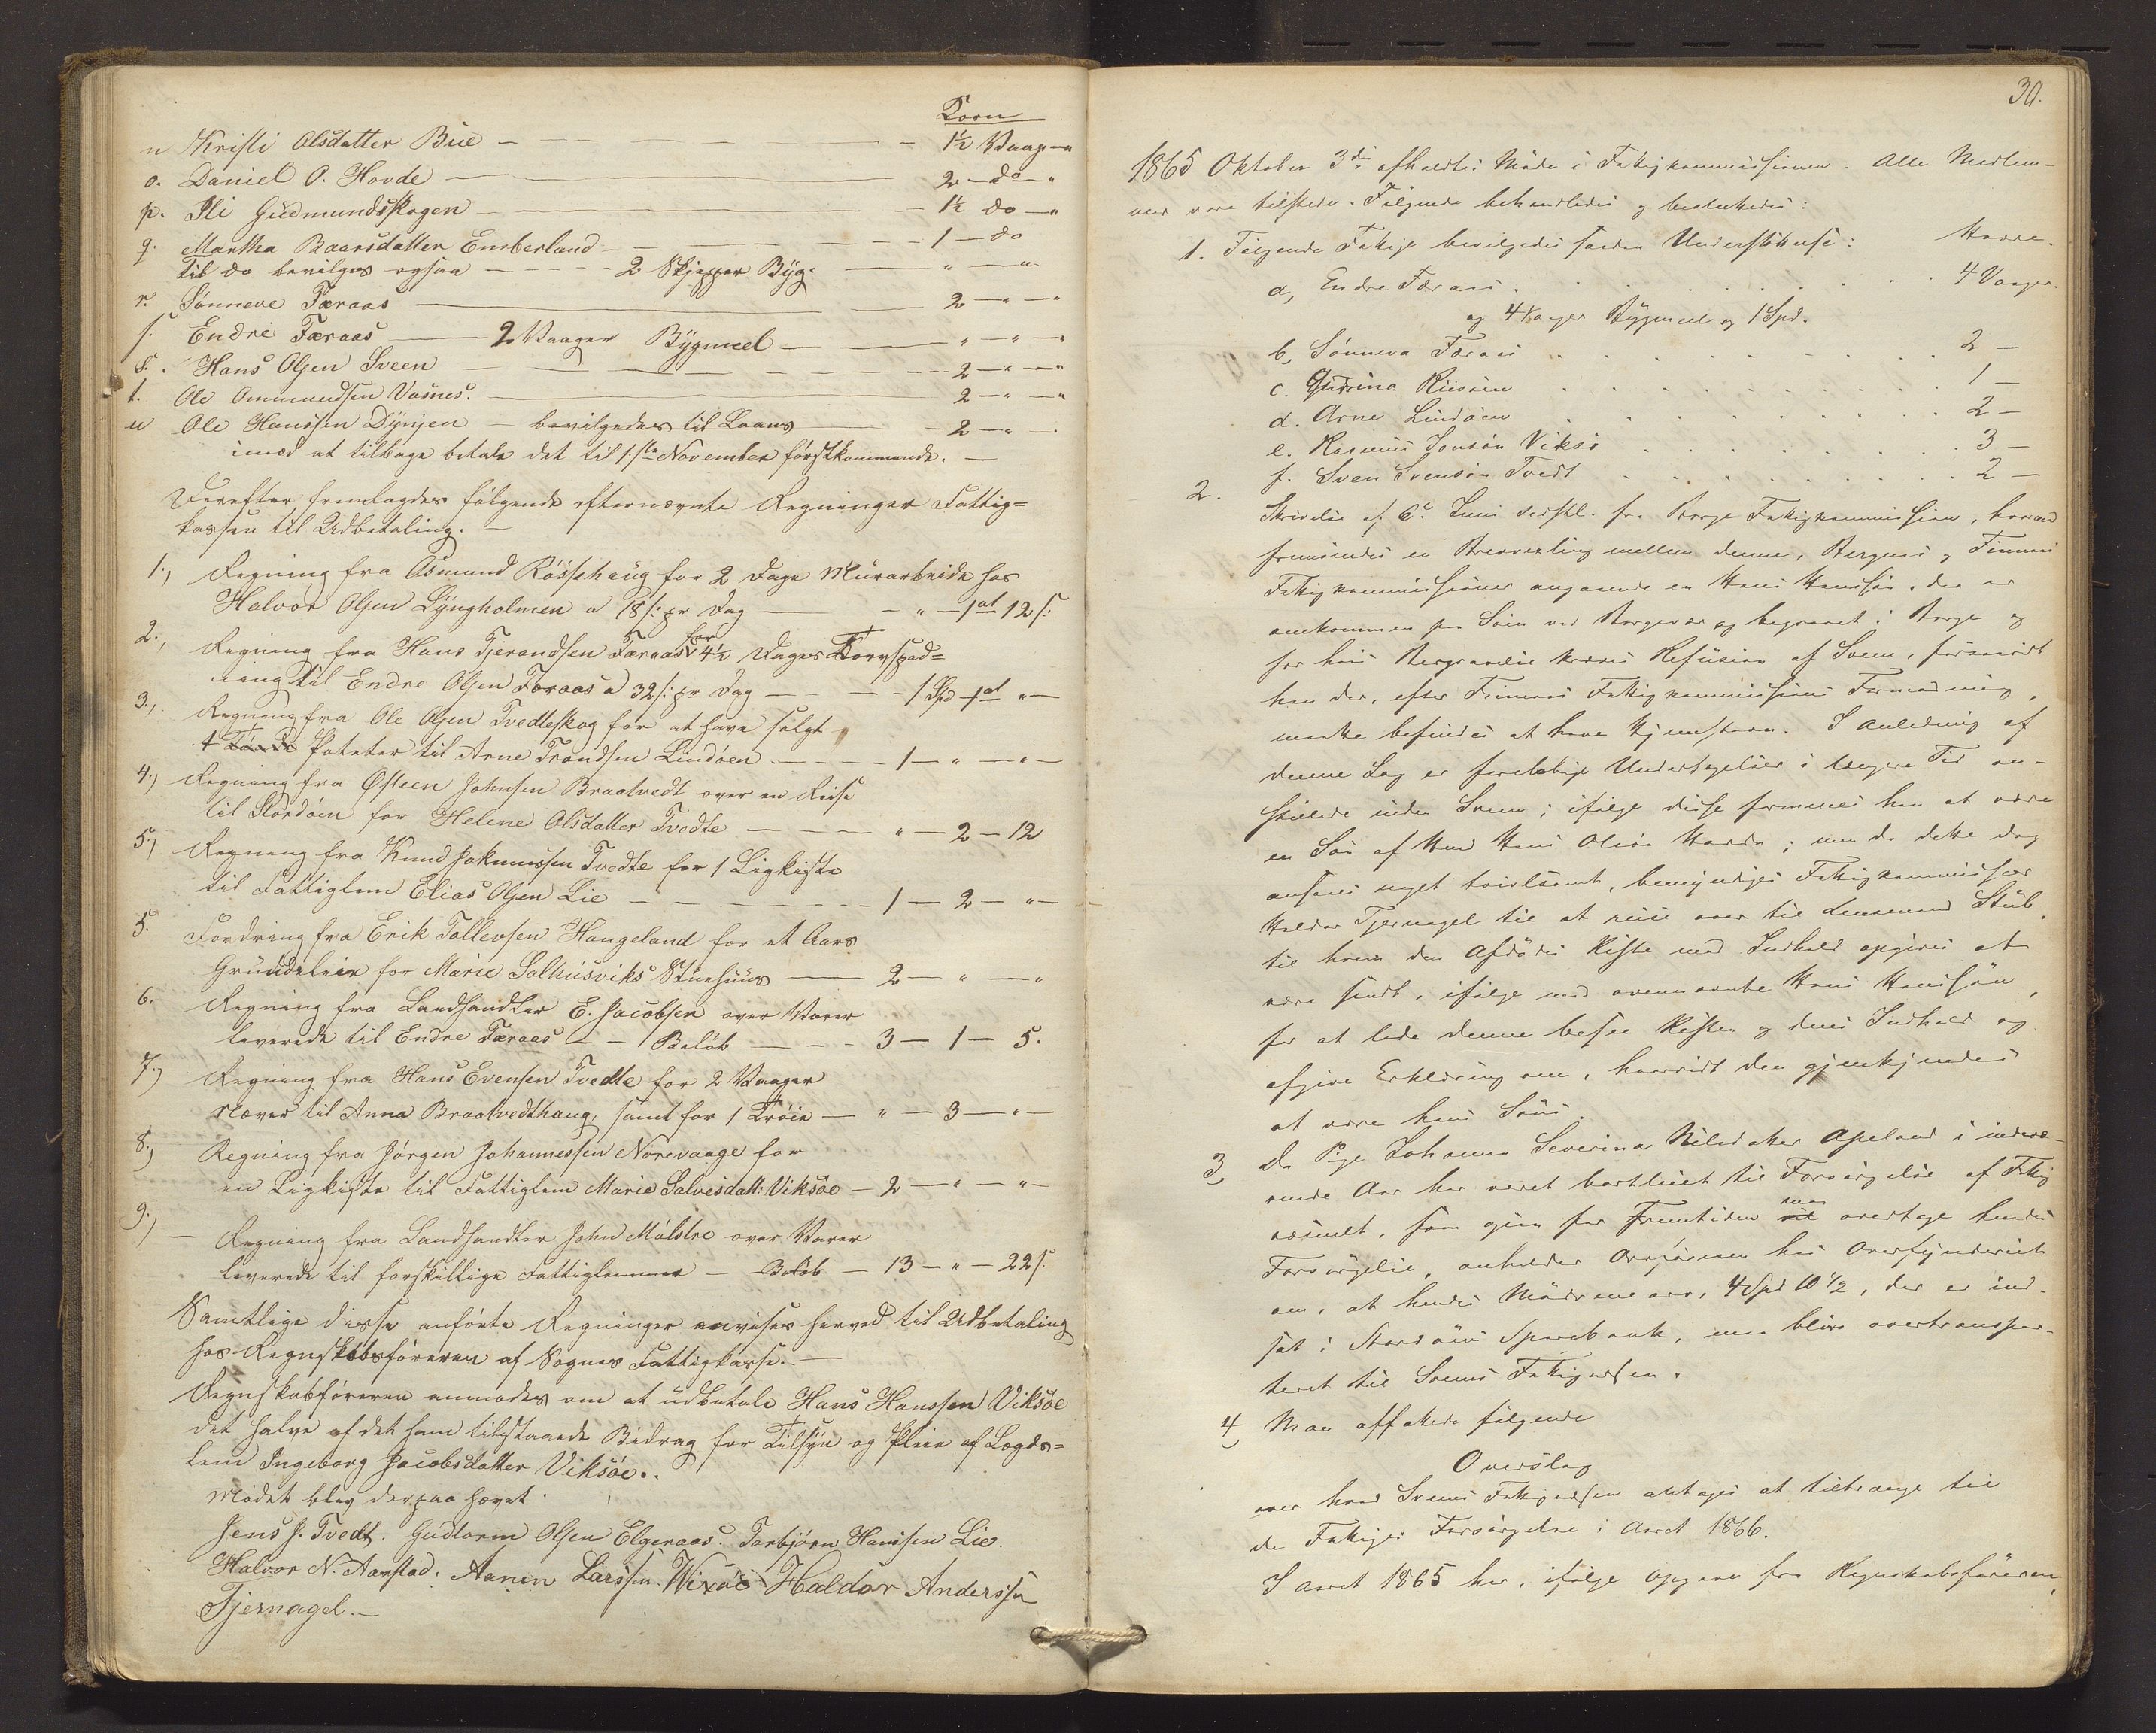 Korn
n Kristi Olsdatter Bue — 1½ Vaag — "
o. Daniel O. Hovde — 2 — do — "
p. Ili Gudmundskogen — 1½ do — "
q. Martha Baarsdatter Emberland — 1 — do
Til do bevilges ogsaa — 2 Skjepper Byg. — " — "
r. Sønneve Færaas — 2 — " — "
s. Endre Færaas — 2 Vaager Bygmeel — " — " — "
s. Hans Olsen Sveen — 2 — " — "
t. Ole Ommundsen Vasnes. — 2 — " — "
u Ole Hanssen Dynjen — bevilgedes til Laans — 2 — " — .
imod at tilbage betale det til 1ste November førstkommende. —
Derefter fremlagdes følgende efternævnte Regninger Fattig=
kassen til Udbetaling. —
1., Regning fra Osmund Røsshaug for 2 Dage Murarbeide hos
Halvor Olsen Lyngholmen a 18 s: pr Dag — " — 1 ort 12 s:
2., Regning fra Hans Tjerandsen Færaas for 4½ Dages Torvspad=
ning til Endre Olsen Færaas a 32 s: pr Dag — 1 Spd 1 ort " —
3., Regning fra Ole Olsen Tvedteskog for at have solgt
1 Tønde Poteter til Arne Trondsen Lindøen. — 1 — " — " —
4., Regning fra Østeen Johnsen Braatvedt over en Reise
til Stordøen for Helene Olsdatter Tvedte — " — 2 — 12
5., Regning fra Knud Johnnessen Tvedte for 1 Ligkiste
til Fattiglem Elias Olsen Lie — 1 — 2 — " —
5. Fordring fra Erik Tollevsen Haugeland for et Aars
Grundeleie for Marie Salhusviks Stuehuus — 2 — " — "
6. Regning fra Landhandler E. Jacobsen over Varer
leverede til Endre Færaas — Beløb — 3 — 1 — 5.
7., Regning fra Hans Evensen Tvedte for 2 Vaager
Næver til Anna Braatvedthaug, samt for 1 Trøie — " — 3 — " —
8., Regning fra Jørgen Johannessen Norevaage for
en Ligkiste til Fattiglem Marie Salvesdatt: Viksøe — 2 — " — " —
9., — Regning fra Landhandler John Mølstre over Varer
leverede til forskillige Fattiglemmer — Beløb — 13 — " — 22 s.
Samtlige disse anførte Regninger anvises herved til Udbetaling
hos Regnskabsføreren af Sognets Fattigkasse. —
Regnskabsføreren anmodes om at udbetale Hans Hanssen Viksøe
det halve af det ham tilstaaede Bidrag for Tilsyn og Pleie af Lægds=
lem Ingeborg Jacobsdatter Viksøe. .
Mødet blev derpaa hævet.
Jens J. Tvedt. Gudtorm Olsen Elgeraas. Torbjørn Hanssen Lie.
Halvor N. Aarstad. Aanen Larssen Wixøe Haldor Anderssen
Tjernagel. —
30.
1865 Oktober 3die afholdtes Møde i Fattigkommissionen. Alle Medlem-
mer vare tilstede. Følgende behandledes og besluttedes:
1. Følgende Fattige bevilgedes saadan Understøttelse: Havre.
a, Endre Færaas . . . 4 Vaager.
og 4 Vaager Bygmeel og 1 Spd.
b, Sønneva Færaas . . . 2 —
c. Gurina Riisøen . . . 1 —
d. Arne Lindøen . . . 2 —
e. Rasmus Jonsøn Viksø . . . 3 —
f. Sven Svensøn Tvedt . . . 2 —
2. Skrivelse af 6te Juni sidstl. fra Borge Fattigkommission, hvormed
fremsendes en Brevvexling mellem denne, Bergens og Finnaas
Fattigkommissioner angaaende en Hans Hanssøn, der er
omkommen paa Søen ved Borgevær og begravet i Borge og
for hvis Begravelse kræves Refusion af Sveen, forsaavidt
han der, efter Finnaas Fattigkommissions Formodning,
maatte befindes at have Hjemstavn. I Anledning af
denne Sag er foreløbige Undersøgelser i længere Tid an-
stillede inden Sveen; ifølge disse formenes han at være
en Søn af Hans Olsøn Hovda; men da dette dog
ansees noget tvivlsomt, bemyndiges Fattigkommissær
Haldor Tjernagel til at reise over til Lensmand Stub,
til hvem den Afdødes Kiste med Indhold opgives at
være sendt, ifølge med ovennævnte Hans Hanssøn,
for at lade denne besee Kisten og dens Indhold og
afgive Erklæring om, hvorvidt den gjenkjendes
at være hans Søns.
3, Da Pige Johanna Severina Nilsdatter Apeland i indevæ-
rende Aar har været bortleiet til Forsørgelse af Fattig
væsenet, som ogsaa for Fremtiden maa overtage hendes
Forsørgelse, anholder Ordføreren hos Overformynderiet
om, at hendes Mødrenearv, 4 Spd 10 ½, der er ind-
sat i Stordøens Sparebank, maa blive overtranspor-
teret til Sveens Fattigkassen.
4, Man affattede følgende
Overslag
over hvad Sveens Fattigkassen antages at tiltrænge til
de Fattiges Forsørgelse i Aaret 1866.
I Aaret 1865 har, ifølge Opgave fra Regnskabsføreren,